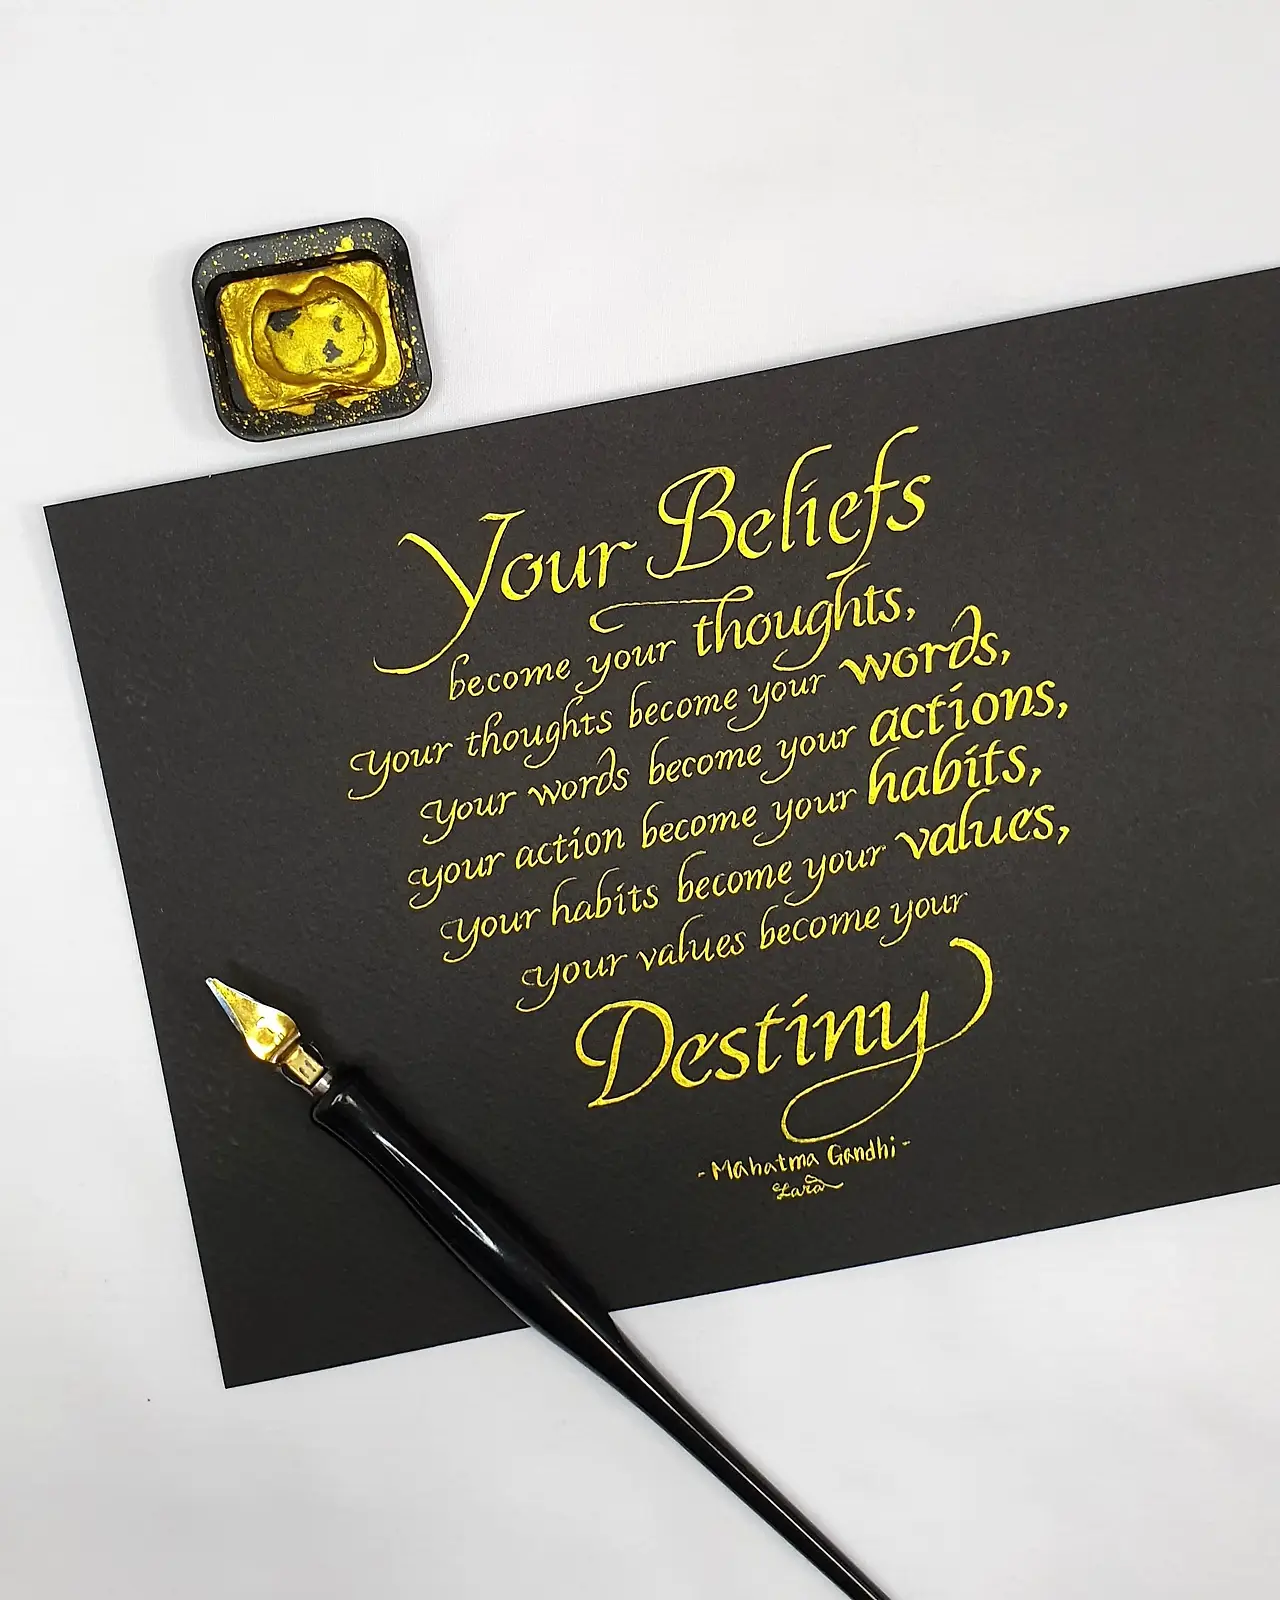 Your Beliefs
become your thoughts,
your thoughts become your words,
your words become your actions,
your action become your habits,
your habits become your values,
your values become your
Destiny
-Mahatma Gandhi-
Lara